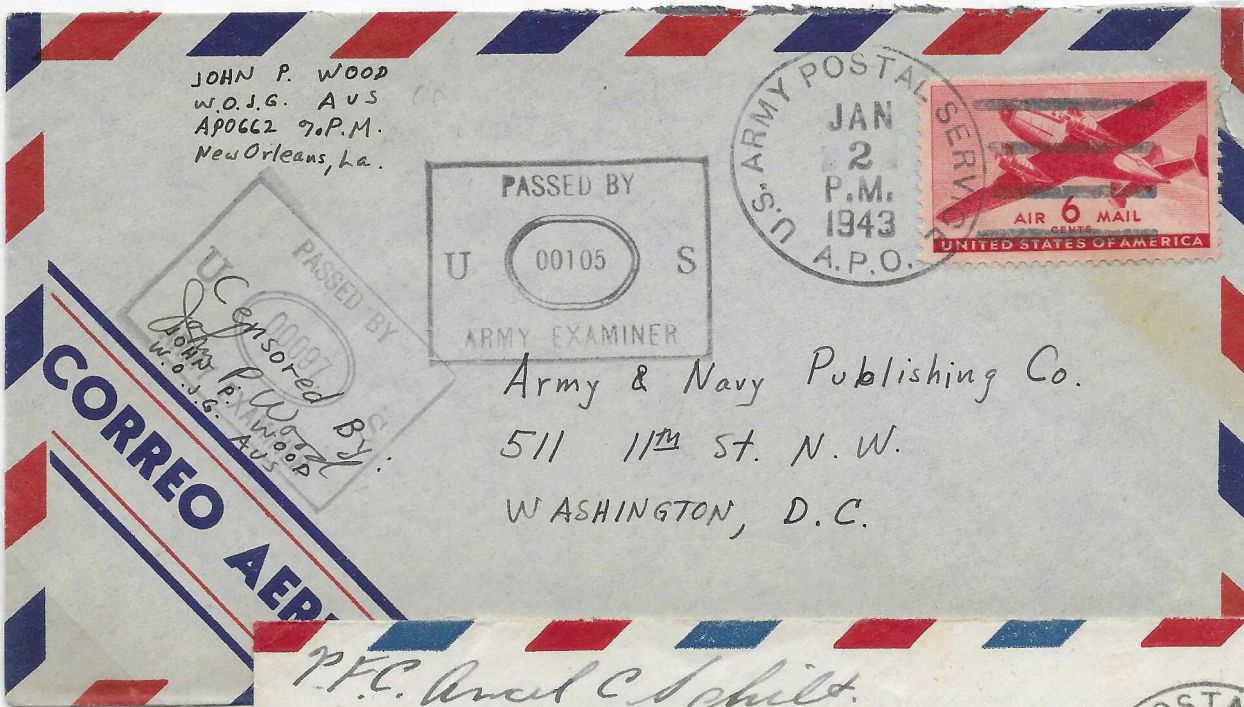 JOHN P. WOOD
W.O.J.G. AUS
APO662 %P.M.
New Orleans, La.
U.S. ARMY POSTAL SERVICE
JAN
2
P.M.
1943
A.P.O.
AIR 6 MAIL
CENTS
UNITED STATES OF AMERICA
PASSED BY
U 00105 S
ARMY EXAMINER
PASSED BY
U 00097 S
ARMY EXAMINER
Censored By:
John P. Wood
JOHN P. WOOD
W.O.J.G. AUS
Army & Navy Publishing Co.
511 11TH St. N.W.
WASHINGTON, D.C.
CORREO AER
P.F.C. Ancel C
POSTA